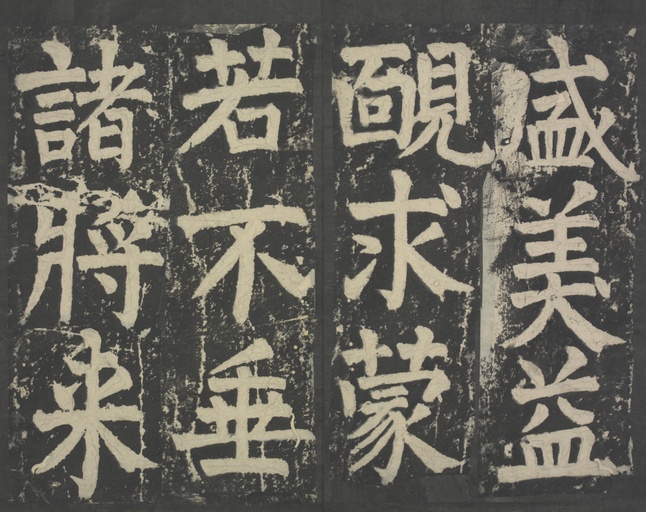 盛美益
靦求蒙
若不垂
諸將来